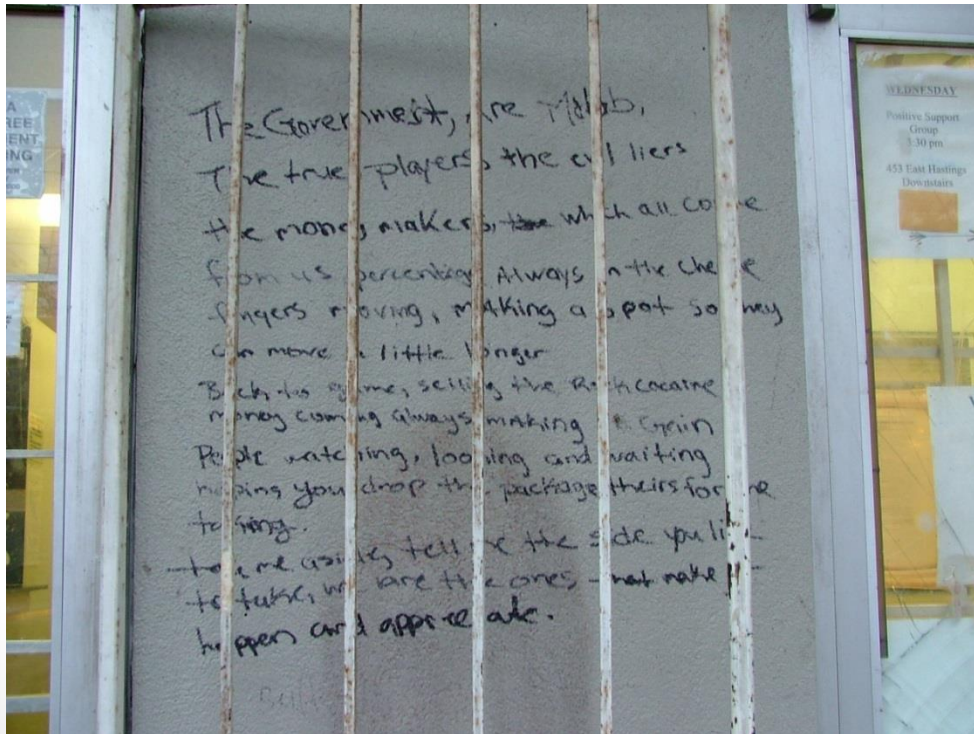 A
REE
ENT
ING
The Government, are
The true players, the evil liers
the money makers, the which all come
from us percentage Always in the
fingers moving, making a spot so they
can move a little longer
Back to game, selling the Rock cocaine
money coming always making a Gain
People watching, looking and waiting
hoping you drop the package theirs for the
taking.
take me aside, tell me the side you like
to take, we are the ones that make it
happen and
WEDNESDAY
Positive Support
Group
3:30 pm
453 East Hastings
Downstairs